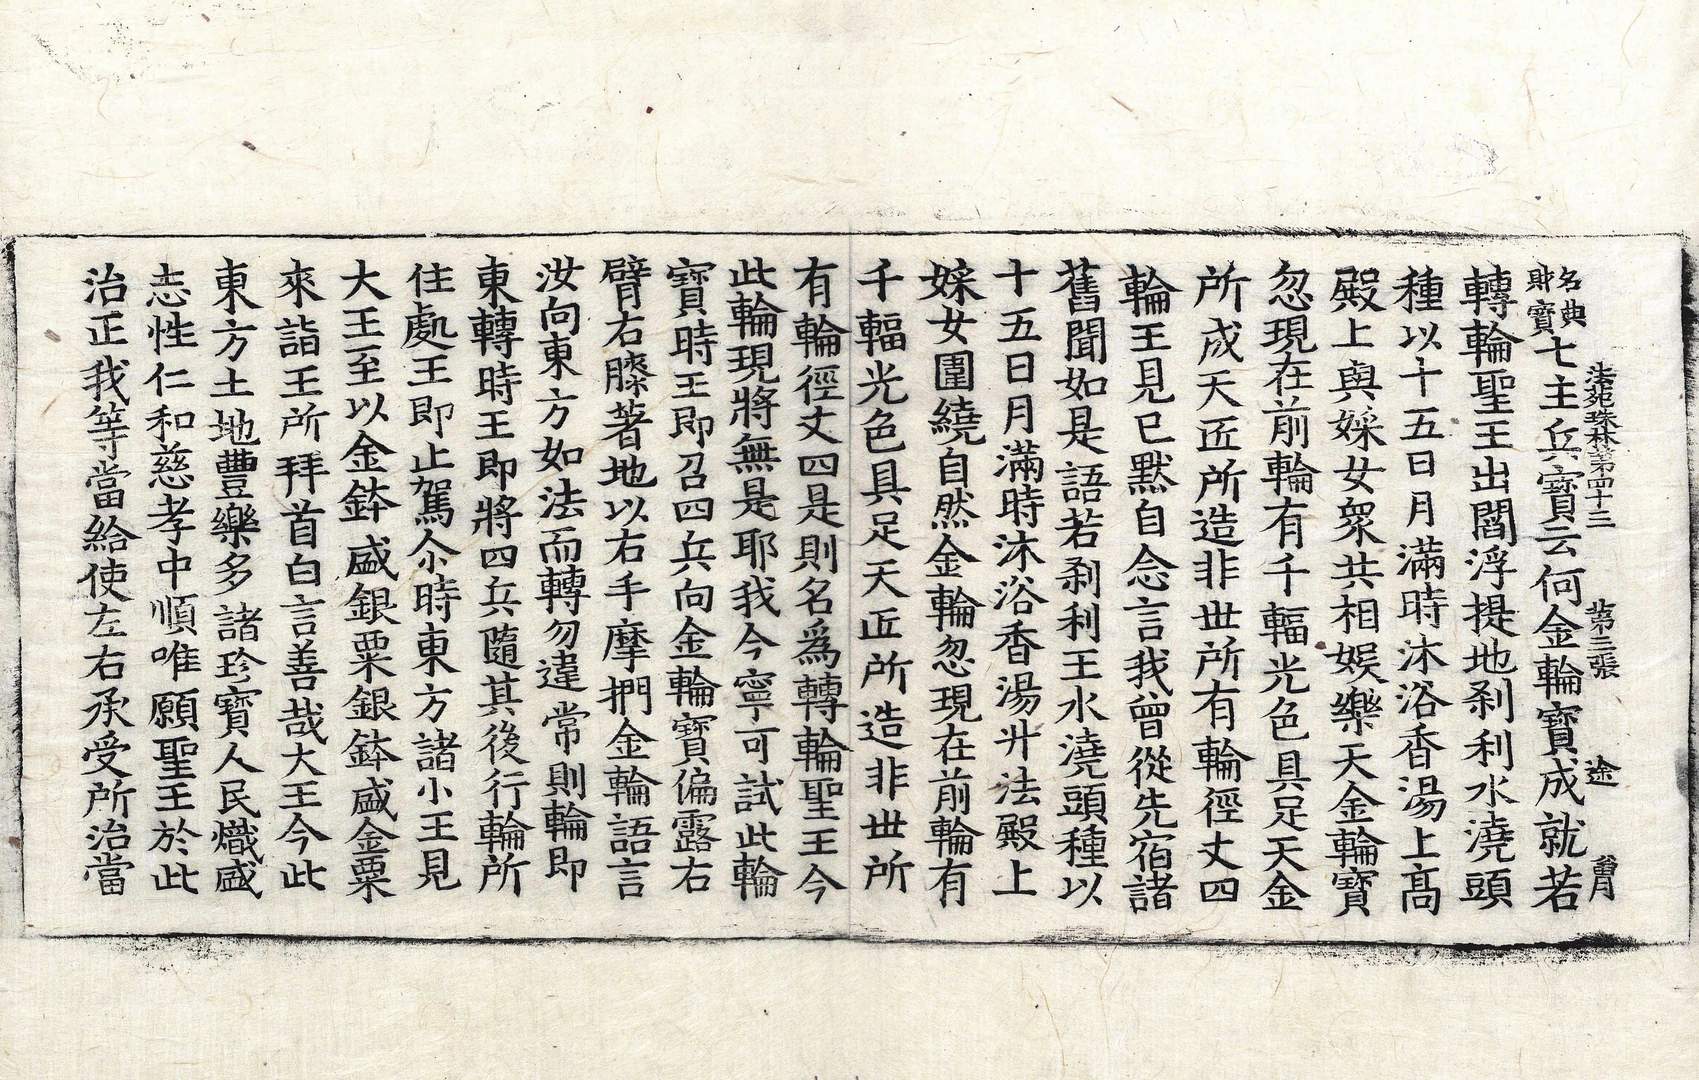 法苑珠林第四十三 第三張 途
名典財寶七主兵寶云何金輪寶成就若
轉輪聖王出閻浮提地刹利水澆頭
種以十五日月滿時沐浴香湯上高
殿上與婇女衆共相娛樂天金輪寶
忽現在前輪有千輻光色具足天金
所成天匠所造非世所有輪徑丈四
輪王見已默自念言我曾從先宿諸
舊聞如是語若刹利王水澆頭種以
十五日月滿時沐浴香湯升法殿上
婇女圍繞自然金輪忽現在前輪有
千輻光色具足天匠所造非世所
有輪徑丈四是則名爲轉輪聖王今
此輪現將無是耶我今寧可試此輪
寶時王即召四兵向金輪寶偏露右
臂右膝著地以右手摩捫金輪語言
汝向東方如法而轉勿違常則輪即
東轉時王即將四兵隨其後行輪所
住處王即止駕尒時東方諸小王見
大王至以金鉢盛銀粟銀鉢盛金粟
來詣王所拜首白言善哉大王今此
東方土地豐樂多諸珍寶人民熾盛
志性仁和慈孝中順唯願聖王於此
治正我等當給使左右承受所治當